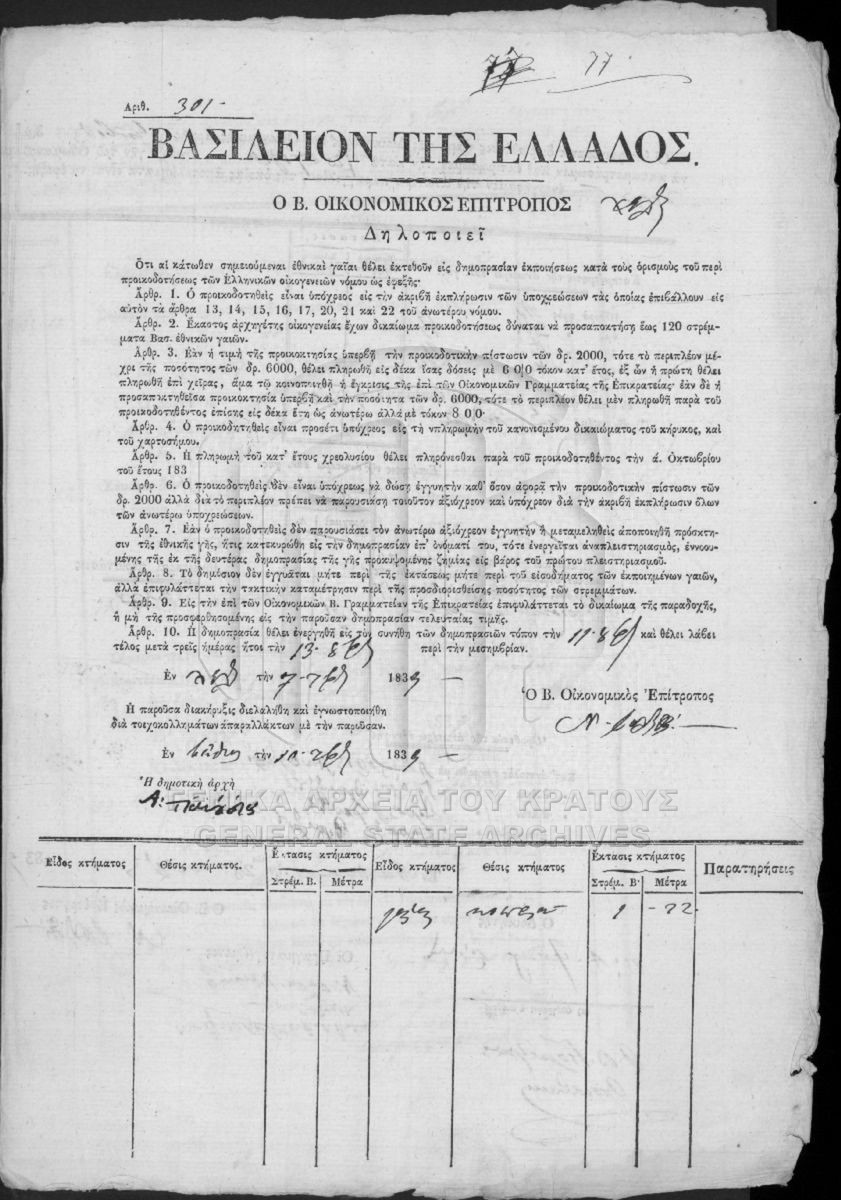 77
Αριθ. 301-
ΒΑΣΙΛΕΙΟΝ ΤΗΣ ΕΛΛΑΔΟΣ.
Ο Β. ΟΙΚΟΝΟΜΙΚΟΣ ΕΠΙΤΡΟΠΟΣ
Δηλοποιεῖ
Ὅτι αἱ κάτωθεν σημειούμεναι ἐθνικαὶ γαῖαι θέλει ἐκτεθοῦν εἰς δημοπρασίαν ἐκποιήσεως κατὰ τοὺς ὁρισμοὺς τοῦ περὶ
προικοδοτήσεως τῶν Ἑλληνικῶν οἰκογενειῶν νόμου ὡς ἐφεξῆς·
Ἄρθρ. 1. Ὁ προικοδοτηθεὶς εἶναι ὑπόχρεος εἰς τὴν ἀκριβῆ ἐκπλήρωσιν τῶν ὑποχρεώσεων τὰς ὁποίας ἐπιβάλλουν εἰς
αὐτὸν τὰ ἄρθρα 13, 14, 15, 16, 17, 20, 21 καὶ 22 τοῦ ἀνωτέρω νόμου.
Ἄρθρ. 2. Ἕκαστος ἀρχηγέτης οἰκογενείας ἔχων δικαίωμα προικοδοτήσεως δύναται νὰ προσαποκτήσῃ ἕως 120 στρέμ-
ματα Βασ. ἐθνικῶν γαιῶν.
Ἄρθρ. 3. Ἐὰν ἡ τιμὴ τῆς προικοκτησίας ὑπερβῇ τὴν προικοδοτικὴν πίστωσιν τῶν δρ. 2000, τότε τὸ περιπλέον μέ-
χρι τῆς ποσότητος τῶν δρ. 6000, θέλει πληρωθῆ εἰς δέκα ἴσας δόσεις μὲ 6 0|0 τόκον κατ' ἔτος, ἐξ ὧν ἡ πρώτη θέλει
πληρωθῆ ἐπὶ χεῖρας, ἅμα τῷ κοινοποιηθῇ ἡ ἔγκρισις τῆς ἐπὶ τῶν Οἰκονομικῶν Γραμματείας τῆς Ἐπικρατείας· ἐὰν δὲ ἡ
προσαποκτηθεῖσα προικοκτησία ὑπερβῇ καὶ τὴν ποσότητα τῶν δρ. 6000, τότε τὸ περιπλέον θέλει μὲν πληρωθῆ παρὰ τοῦ
προικοδοτηθέντος ἐπίσης εἰς δέκα ἔτη ὡς ἀνωτέρω ἀλλὰ μὲ τόκον 8 0|0·
Ἄρθρ. 4. Ὁ προικοδοτηθεὶς εἶναι προσέτι ὑπόχρεος εἰς τὴν πληρωμὴν τοῦ κανονισμένου δικαιώματος τοῦ κήρυκος, καὶ
τοῦ χαρτοσήμου.
Ἄρθρ. 5. Ἡ πληρωμὴ τοῦ κατ' ἔτους χρεολυσίου θέλει πληρόνεσθαι παρὰ τοῦ προικοδοτηθέντος τὴν ά. Ὀκτωβρίου
τοῦ ἔτους 183
Ἄρθρ. 6. Ὁ προικοδοτηθεὶς δὲν εἶναι ὑπόχρεως νὰ δώσῃ ἐγγυητὴν καθ' ὅσον ἀφορᾷ τὴν προικοδοτικὴν πίστωσιν τῶν
δρ. 2000 ἀλλὰ διὰ τὸ περιπλέον πρέπει νὰ παρουσιάσῃ τοιοῦτον ἀξιόχρεον καὶ ὑπόχρεον διὰ τὴν ἀκριβῆ ἐκπλήρωσιν ὅλων
τῶν ἀνωτέρω ὑποχρεώσεων.
Ἄρθρ. 7. Ἐὰν ὁ προικοδοτηθεὶς δὲν παρουσιάσει τὸν ἀνωτέρω ἀξιόχρεον ἐγγυητὴν ἢ μεταμεληθεὶς ἀποποιηθῇ πρόσκτη-
σιν τῆς ἐθνικῆς γῆς, ἥτις κατεκυρώθη εἰς τὴν δημοπρασίαν ἐπ' ὀνόματί του, τότε ἐνεργεῖται ἀναπλειστηριασμὸς, ἐννοου-
μένης τῆς ἐκ τῆς δευτέρας δημοπρασίας τῆς γῆς προκυψομένης ζημίας εἰς βάρος τοῦ πρώτου πλειστηριασμοῦ.
Ἄρθρ. 8. Τὸ δημόσιον δὲν ἐγγυᾶται μήτε περὶ τῆς ἐκτάσεως μήτε περὶ τοῦ εἰσοδήματος τῶν ἐκποιημένων γαιῶν,
ἀλλὰ ἐπιφυλάττεται τὴν τακτικὴν καταμέτρησιν περὶ τῆς προσδιορισθείσης ποσότητος τῶν στρεμμάτων.
Ἄρθρ. 9. Εἰς τὴν ἐπὶ τῶν Οἰκονομικῶν Β. Γραμματείαν τῆς Ἐπικρατείας ἐπιφυλάττεται τὸ δικαίωμα τῆς παραδοχῆς,
ἢ μὴ τῆς προσφερθησομένης εἰς τὴν παροῦσαν δημοπρασίαν τελευταίας τιμῆς.
Ἄρθρ. 10. Ἡ δημοπρασία θέλει ἐνεργηθῆ εἰς τὸν συνήθη τῶν δημοπρασιῶν τόπον τὴν 11 καὶ θέλει λάβει
τέλος μετὰ τρεῖς ἡμέρας ἤτοι τὴν 13 περὶ τὴν μεσημβρίαν.
Ἐν τὴν 7 1839
Ὁ Β. Οἰκονομικὸς Ἐπίτροπος
Ἡ παροῦσα διακήρυξις διελαλήθη καὶ ἐγνωστοποιήθη
διὰ τοιχοκολλημάτων ἀπαραλλάκτων μὲ τὴν παροῦσαν.
Ἐν τὴν 10 1839
Ἡ δημοτικὴ ἀρχὴ
ΓΕΝΙΚΑ ΑΡΧΕΙΑ ΤΟΥ ΚΡΑΤΟΥΣ
GENERAL STATE ARCHIVES
Εἶδος κτήματος Θέσις κτήματος. Ἔκτασις κτήματος Εἶδος κτήματος Θέσις κτήματος Ἔκτασις κτήματος Παρατηρήσεις
Στρέμ. Β. Μέτρα Στρέμ. Β· Μέτρα